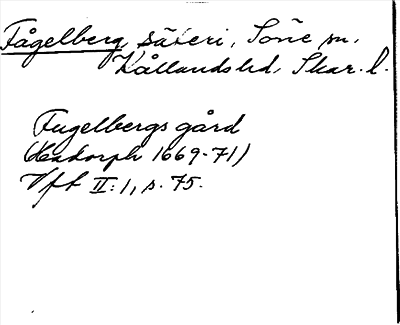 Fågelberg, säteri, Sone sn.
Kållands hd, Skar. l.
Fugelbergs gård
(Hadorph 1669-71)
Vff II:1, s. 75.